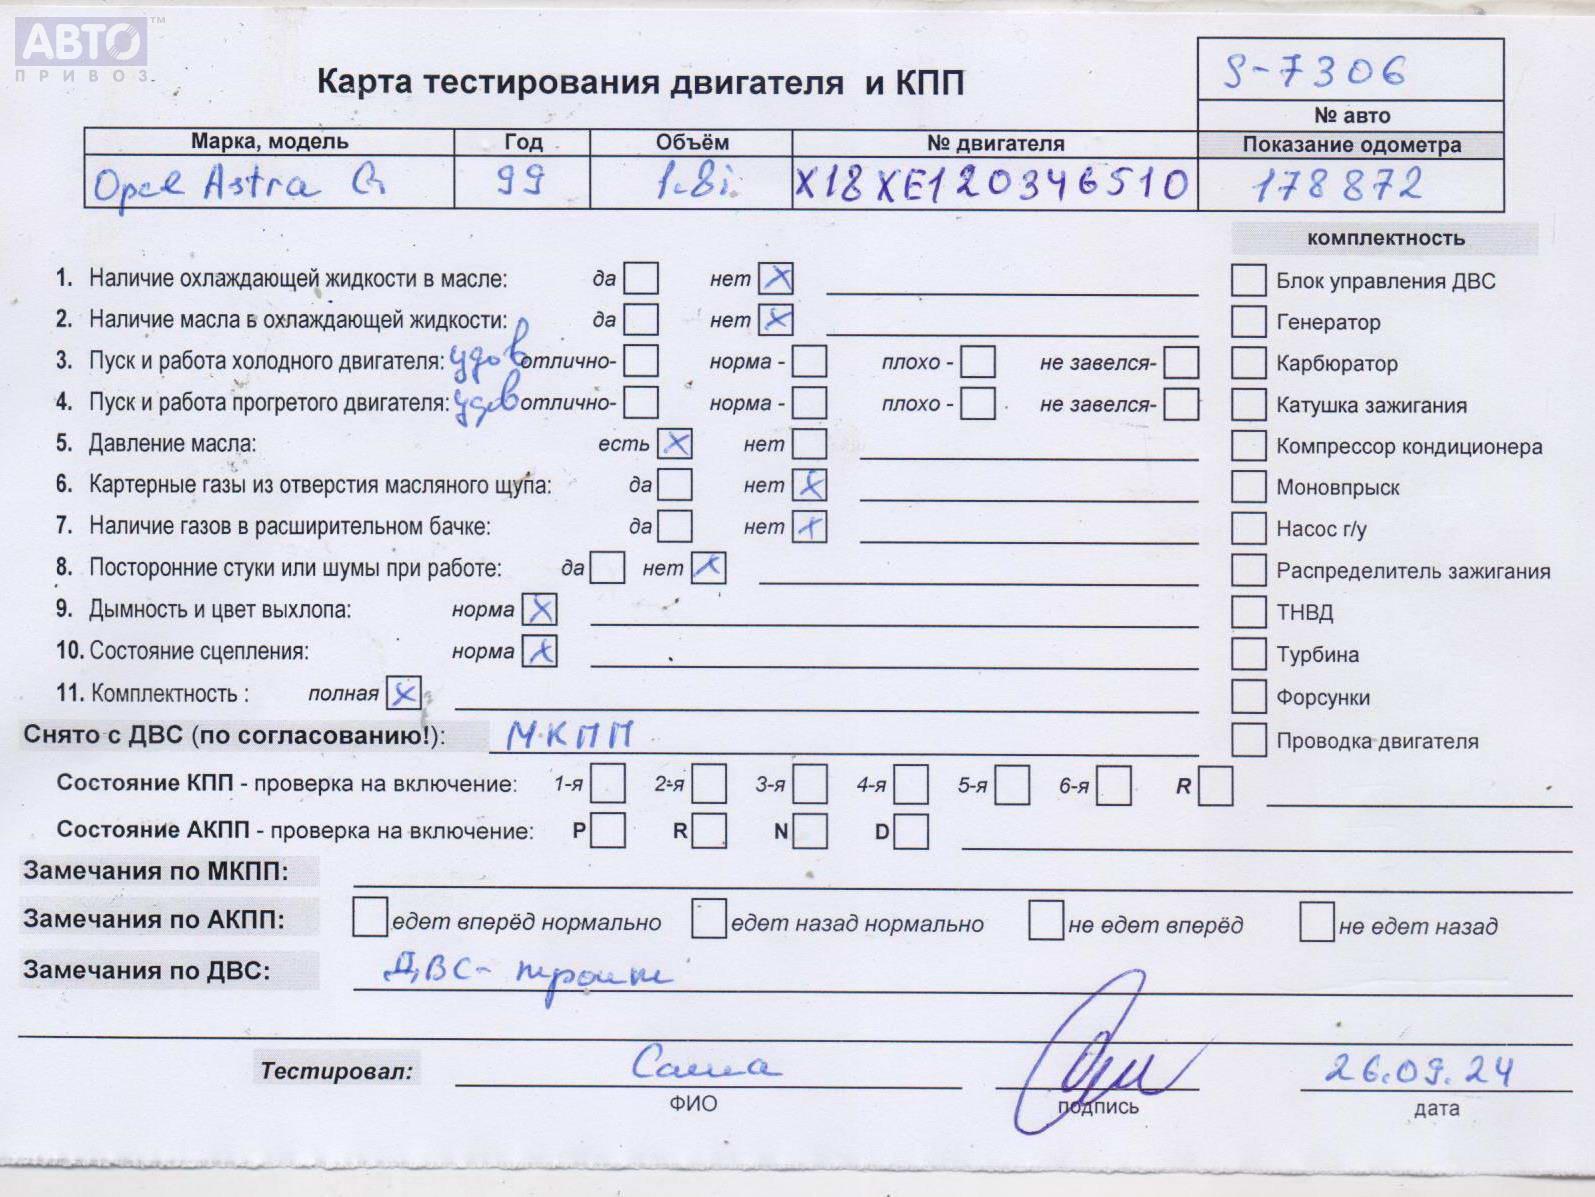 АВТО™
ПРИВОЗ
Карта тестирования двигателя и КПП
S-7306
№ авто
Марка, модель Год Объём № двигателя Показание одометра
Opel Astra G 99 1.8i X18XE120346510 178872
комплектность
1. Наличие охлаждающей жидкости в масле: да нет X
Блок управления ДВС
2. Наличие масла в охлаждающей жидкости: да нет X
Генератор
3. Пуск и работа холодного двигателя: удов отлично- норма - плохо - не завелся-
Карбюратор
4. Пуск и работа прогретого двигателя: удов отлично- норма - плохо - не завелся-
Катушка зажигания
5. Давление масла: есть X нет
Компрессор кондиционера
6. Картерные газы из отверстия масляного щупа: да нет X
Моновпрыск
7. Наличие газов в расширительном бачке: да нет X
Насос г/у
8. Посторонние стуки или шумы при работе: да нет X
Распределитель зажигания
9. Дымность и цвет выхлопа: норма X
ТНВД
10. Состояние сцепления: норма X
Турбина
11. Комплектность : полная X
Форсунки
Снято с ДВС (по согласованию!): МКПП
Проводка двигателя
Состояние КПП - проверка на включение: 1-я 2-я 3-я 4-я 5-я 6-я R
Состояние АКПП - проверка на включение: P R N D
Замечания по МКПП:
Замечания по АКПП: едет вперёд нормально едет назад нормально не едет вперёд не едет назад
Замечания по ДВС: ДВС- троит
Тестировал: Саша 26.09.24
ФИО подпись дата